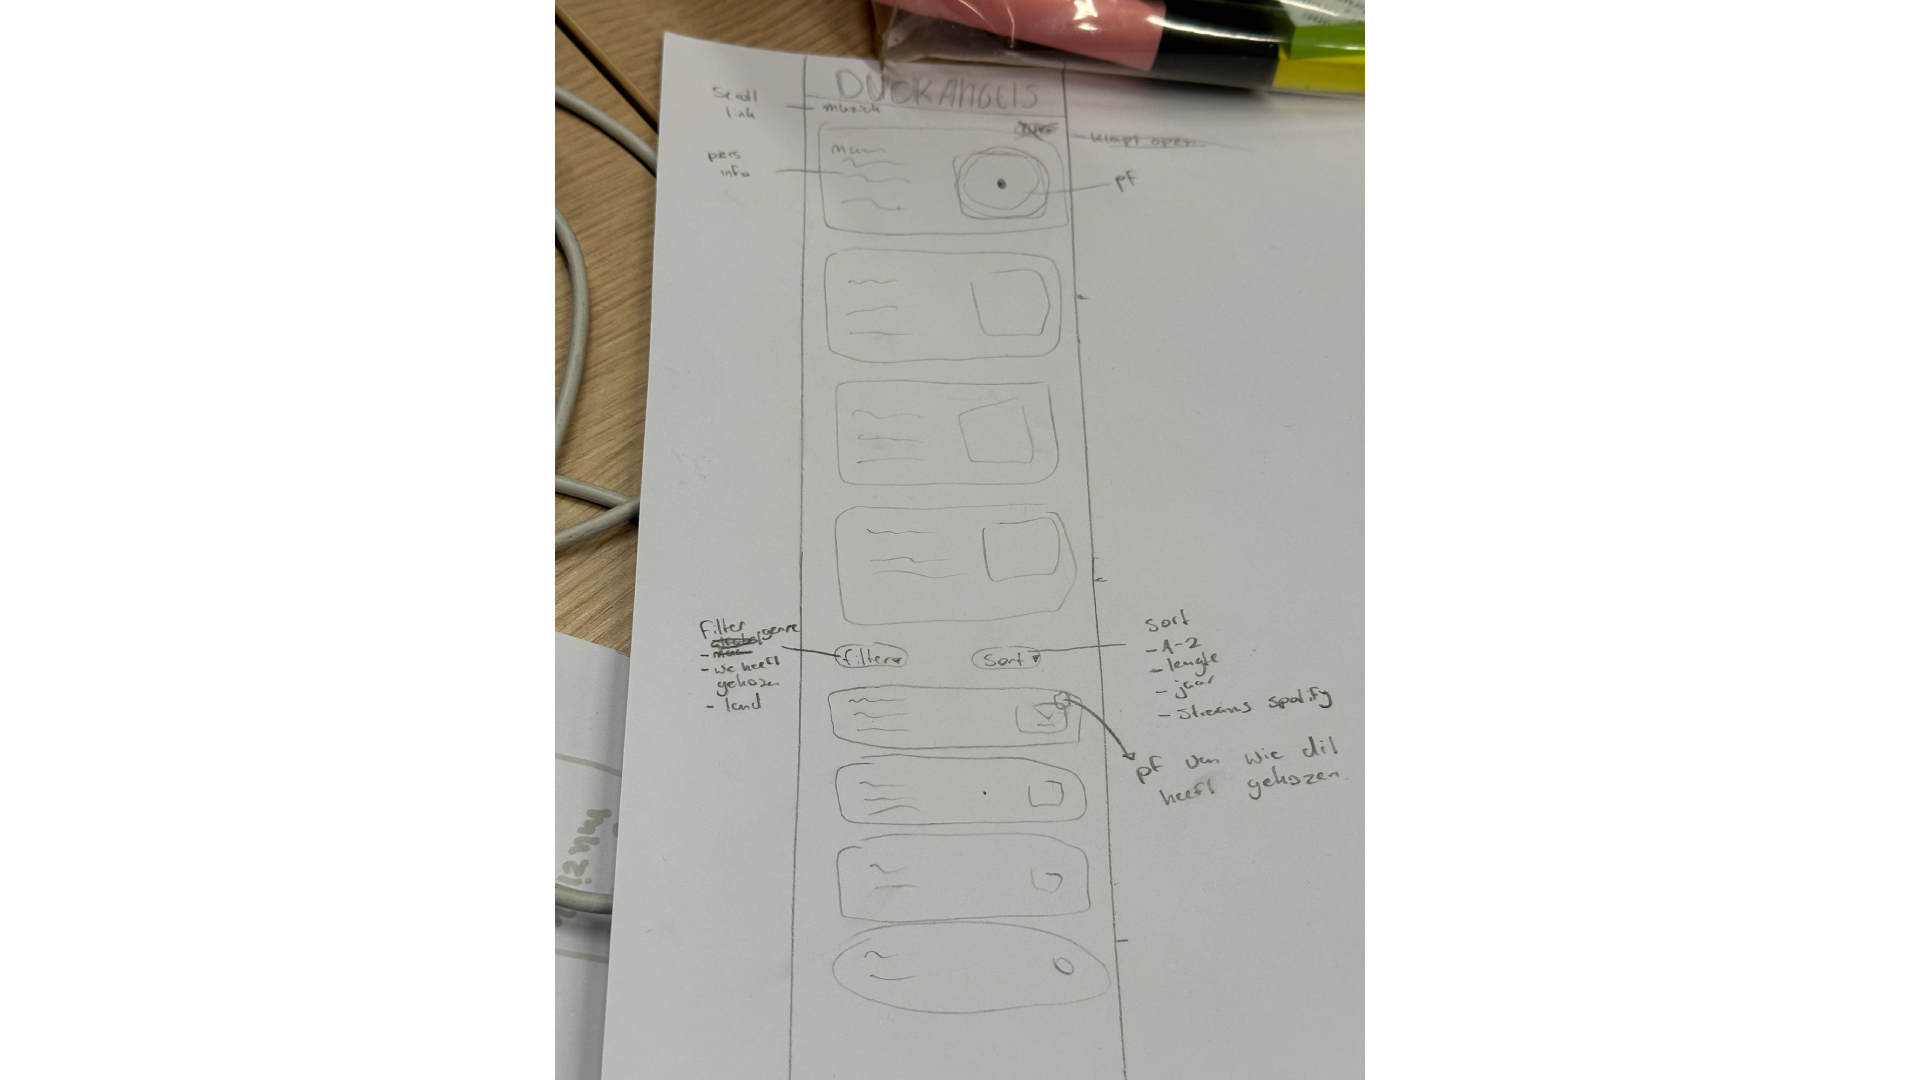 DUCKAngels
Scroll
link
muziek
klapt open
pers
info
naam
pf
filter
genre
- wie heeft
gekozen
- land
filter
Sort
Sort
- A-Z
- lengte
- jaar
- streams spotify
pf van wie dit
heeft gekozen